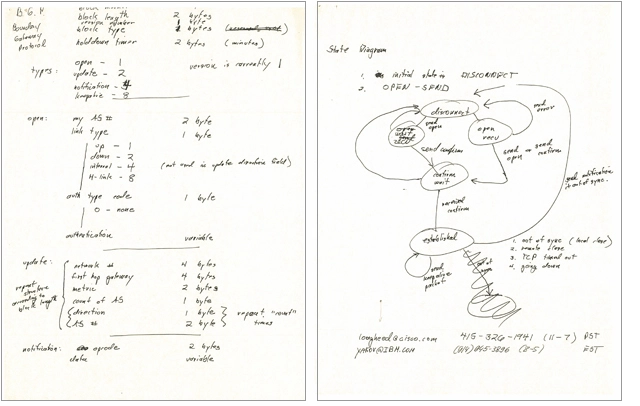 B.G.P.
Boundary
Gateway
Protocol
block length 2 bytes
version number 1 byte
block type 1 bytes
holddown timer 2 bytes (minutes)
types: open - 1 version is currently 1
update - 2
notification - 4
keepalive - 8
open: my AS # 2 byte
link type 1 byte
up - 1
down - 2
internal - 4 (not used in update direction field)
H-link - 8
auth type code 1 byte
0 - none
authentication variable
update: network # 4 bytes
first hop gateway 4 bytes
metric 2 bytes
count of AS 1 byte
direction 1 byte
AS # 2 byte
repeat "count"
times
repeat
according to
block length
notification: opcode 2 bytes
data variable
State Diagram
1. initial state is DISCONNECT
2. OPEN-SEND
disconnect
send
open
open
recv
send confirm
send or send
open confirm
confirm
wait
received
confirm
established
send
keepalive
packets
out of
sync
send notification
if out of sync.
1. out of sync (local close)
2. remote close
3. TCP timed out
4. going down
lougheed@cisco.com 415-326-1941 (11-7) PST
YAKOV@IBM.COM (8-5) EST